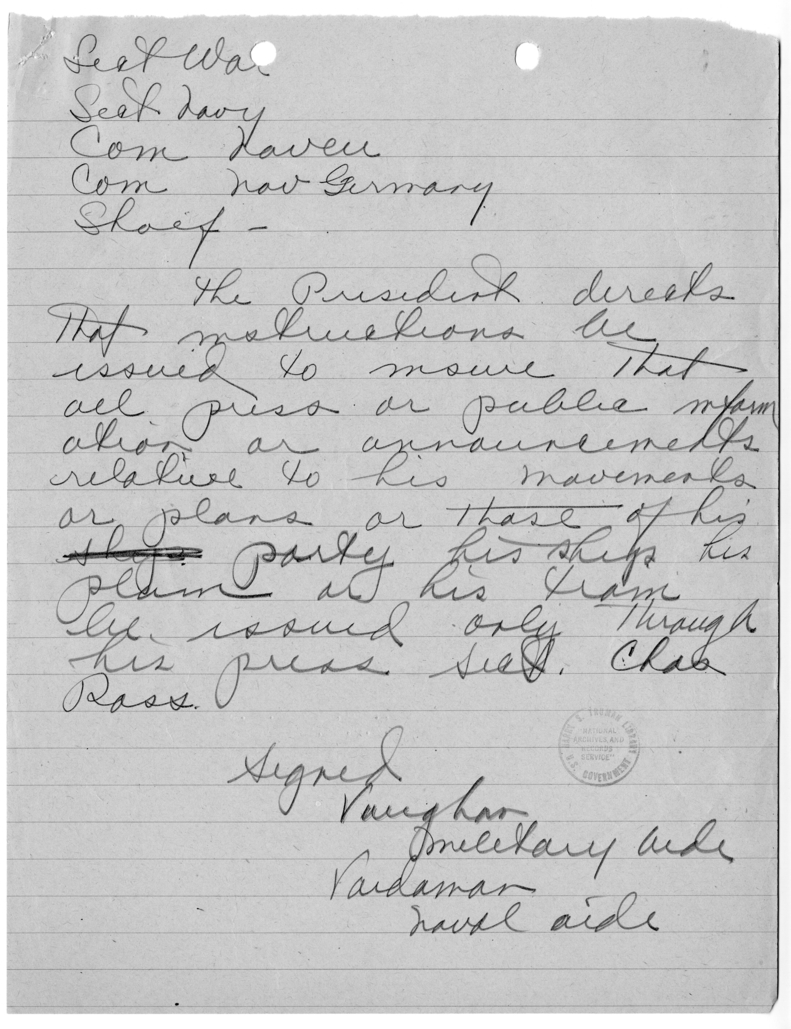 Sect War
Sect Navy
Com Naveu
Com Nav Germany
Shaef -
The President directs
that instructions be
issued to insure that
all press or public inform
ation or announcements
relative to his movements
or plans or those of his
ships party his ships his
plain or his train
be issued only through
his press sect. Chas
Ross.
Signed
Vaughan
military aide
Vardaman
naval aide
HARRY S. TRUMAN LIBRARY
"NATIONAL
ARCHIVES AND
RECORDS
SERVICE"
U.S. GOVERNMENT